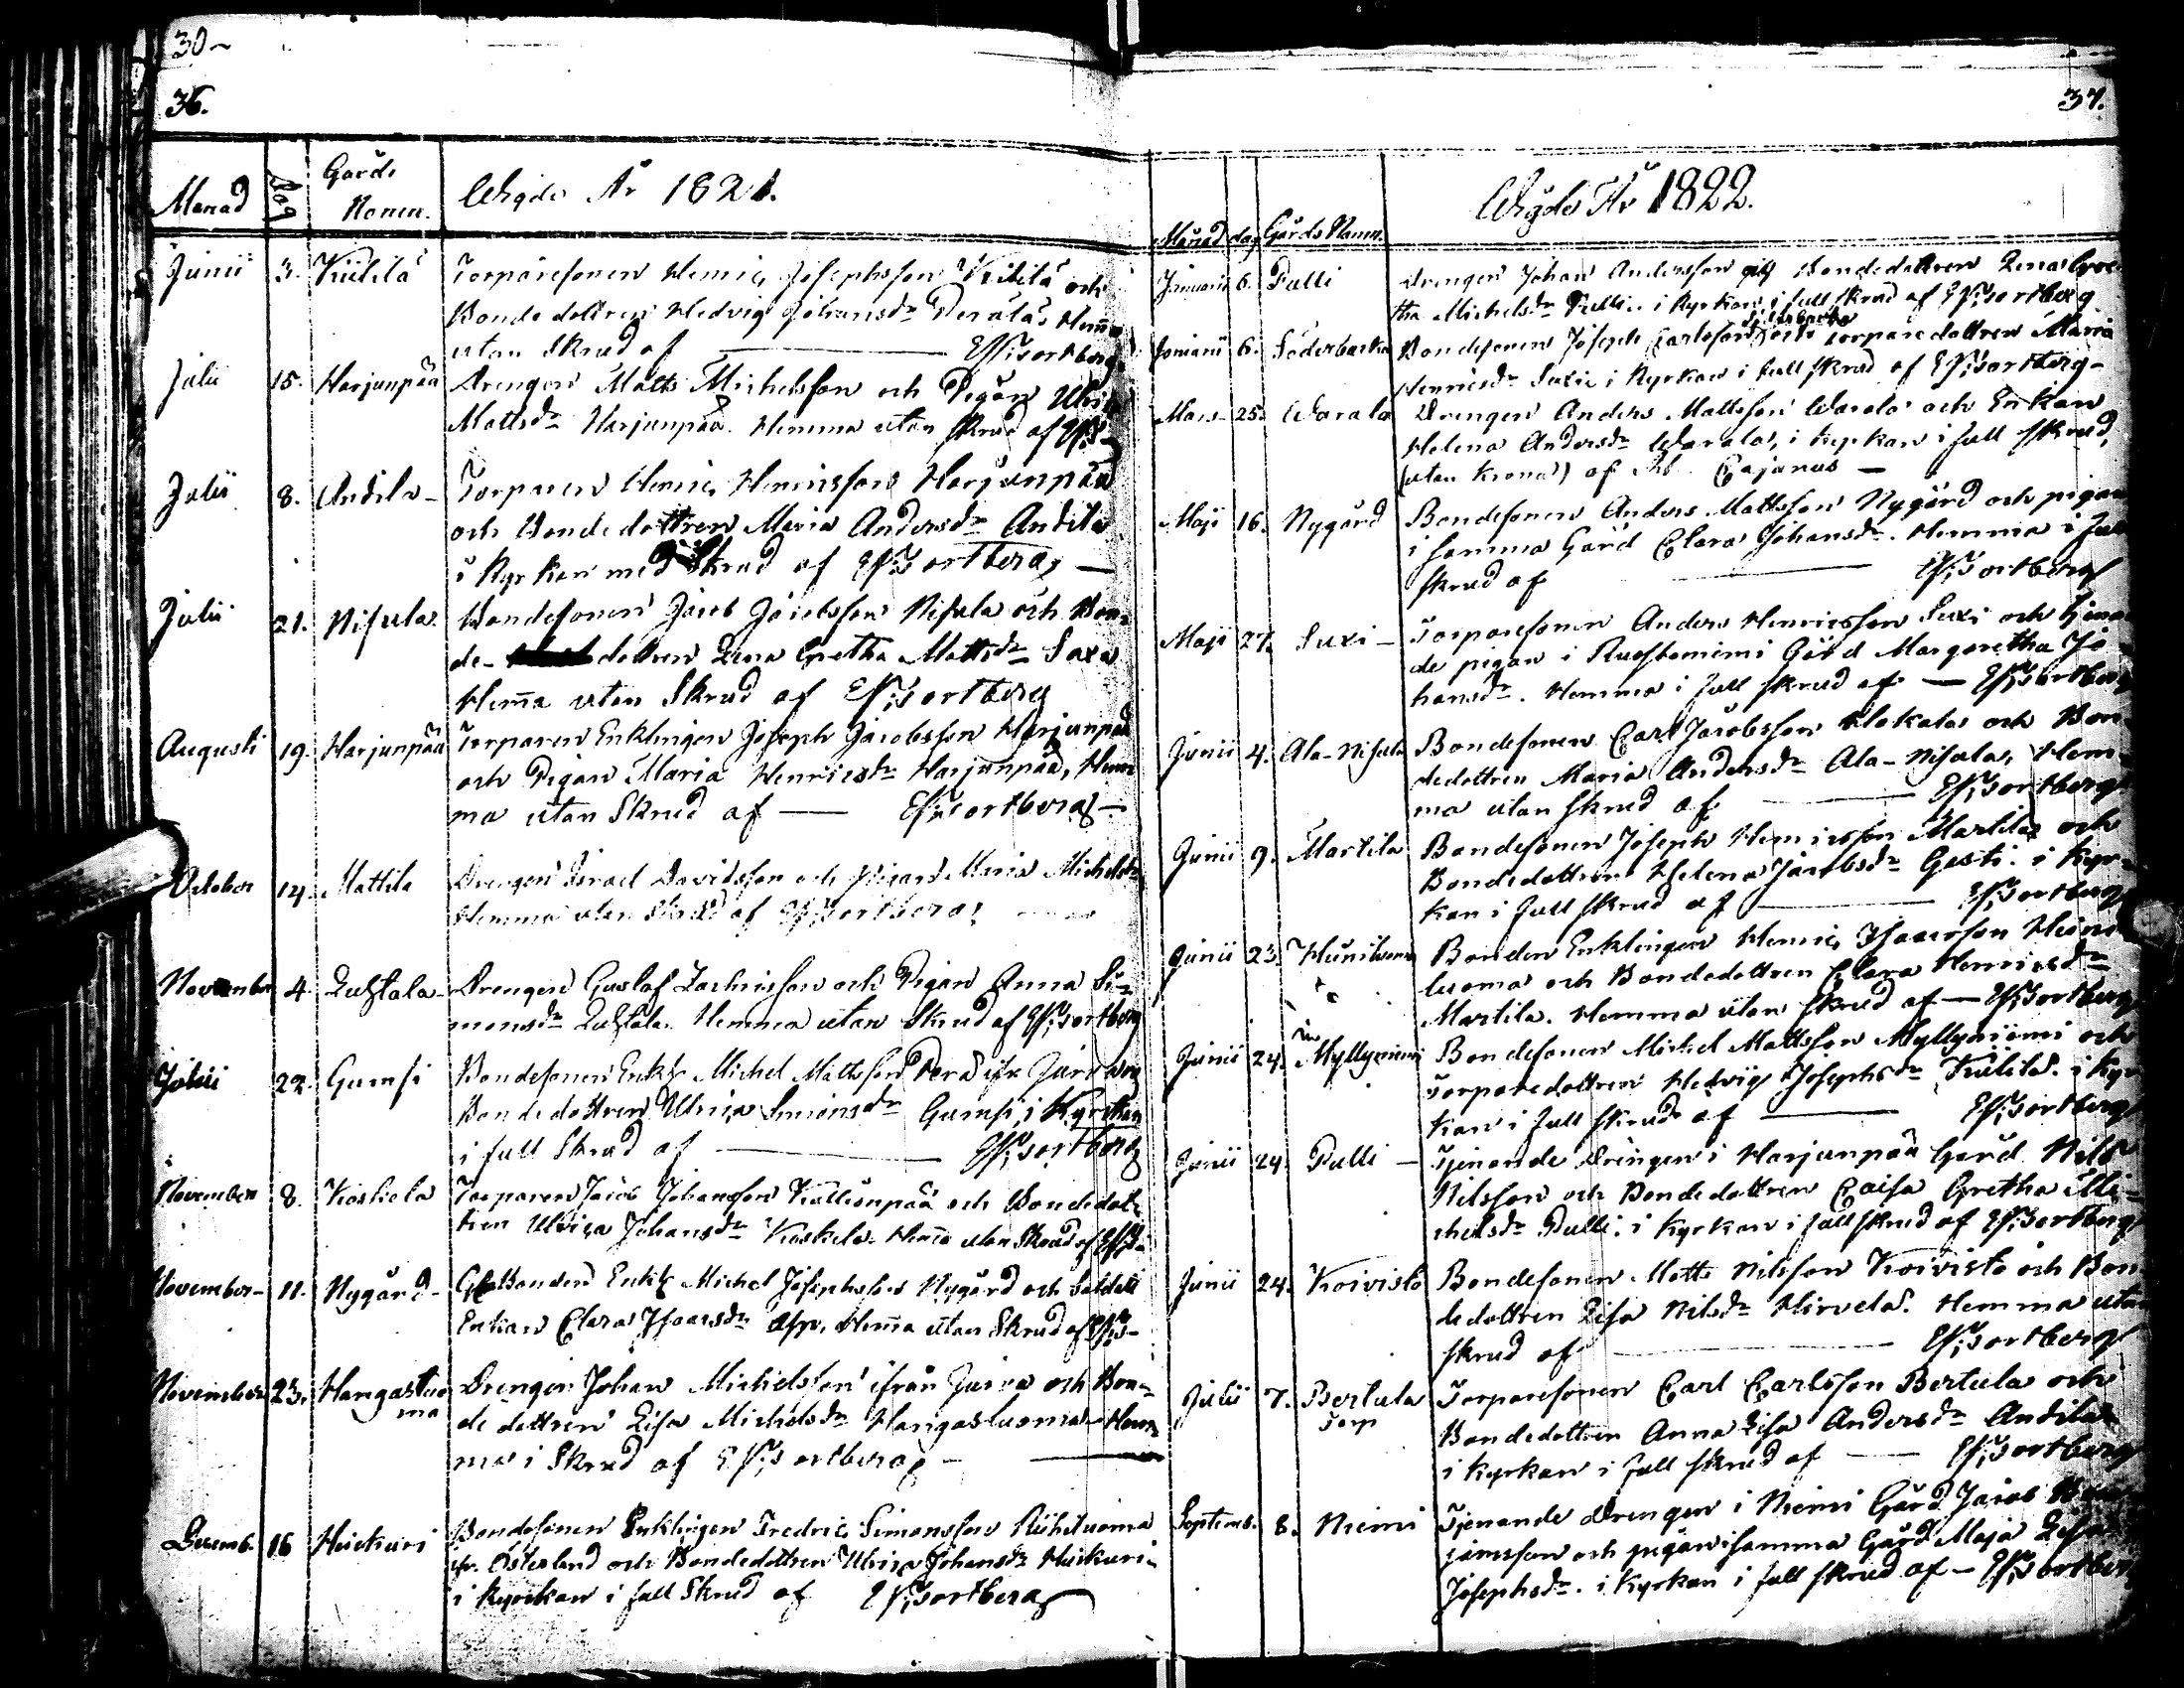 30
36.
Månad Dag Gårds Namn. Wigde År 1821.
Junii 3. Kiikilä Torparesonen Henric Josephsson Kiikilä och
Bonde dottren Hedvig Johansdr Perälä, Hemma
utan Skrud af — Es: Sortberg
Julii 15. Harjunpää Drengen Matts Michelsson och Pigan Ulrica
Mattsdr Harjunpää. Hemma utan Skrud af Es: S
Julii 8. Andila Torparen Henric Henricsson Harjunpää
och Bonde dottren Maria Andersdr Andila
i Kyrkan med Skrud af Es: Sortberg —
Julii 21. Nisula Bondesonen Jacob Jacobsson Nisula och Bon-
de- dottren Lena Gretha Mattsdr Saxa
Hem̄a utan Skrud af Es: Sortberg
Augusti 19. Harjunpää Torparen Enklingen Joseph Jacobsson Harjunpää
och Pigan Maria Henricsdr Harjunpää, Hem-
ma utan Skrud af — Es: Sortberg —
October 14. Mattila Drengen Israel Davidsson och Pigan Maria Michelsdr
Hemma utan Skrud af Es: Sortberg
November 4. Luhtala Drengen Gustaf Zachrisson och Pigan Anna Si-
monsdr Luhtala. Hemma utan Skrud af Es: Sortberg
Julii 22. Gumsi Bondesonen Enkl: Michel Mattsson Perä ifr. Jurva och
Bondedottren Ulrica Simonsdr Gumsi, i Kyrkan
i full Skrud af — Es: Sortberg
November 8. Koskela Torparen Jacob Johansson Kallionpää och Bondedot-
tren Ulrica Johansdr Koskela. Hem̄a utan Skrud af Es: S
November 11. Nygård Bonden Enkl: Michel Josephsson Nygård och Soldat
Enkan Clara Isaacsdr Asp, Hem̄a utan Skrud af Es: S
November 23. Hangasluo Drengen Johan Michelsson ifrån Jurva och Bon-
ma de dottren Lisa Michelsdr Hangasluoma Hem-
ma i Skrud af Es: Sortberg —
Decemb. 16 Heickuri Bondesonen Enklingen Fredric Simonsson Riihiluoma
ifr. Österland och Bondedottren Ulrica Johansdr Heickuri
i Kyrckan i full Skrud af Es: Sortberg
37.
Wigde År 1822.
Månad dag Gårds Namn.
Januarii 6. Pulli Drengen Johan Andersson och Bondedottren Lena Gre-
tha Michelsdr Pulli. i Kyrkan i full skrud af Es: Sortberg
Söderbacka
Januarii 6. Söderbacka Bondesonen Joseph Carlsson och Torparedottren Maria
Henricsdr Luxi i Kyrkan i full skrud af Es: Sortberg
Mars 25. Warala Drengen Anders Mattsson Warala och Enkan
Helena Andersdr Warala, i Kyrkan i full skrud,
(utan krona) af Cajanus —
Maji 16. Nygård Bondesonen Anders Mattsson Nygård och pigan
i samma Gård Clara Johansdr. Hemma i full
skrud af — Es: Sortberg
Maji 27. Luxi Torparesonen Anders Henricsson Luxi och tjenan-
de pigan i Ruostoniemi Gård Margaretha Jo-
hansdr. Hemma i full skrud af — Es: Sortberg
Junii 4. Ala-Nisula Bondesonen Carl Jacobsson Klokala och Bon-
dedottren Maria Andersdr Ala-Nisula, Hem-
ma utan skrud af — Es: Sortberg
Junii 9. Martila Bondesonen Joseph Henricsson Martila och
Bondedottren Helena Jacobsdr Gasti. i Kyr-
kan i full skrud af — Es: Sortberg
Junii 23. Bonden Enklingen Henric Isaacsson Hei
luoma och Bondedottren Clara Henricsdr
Martila. Hemma utan skrud af — Es: Sortberg
Junii 24. Myllyniemi Bondesonen Michel Mattsson Myllyniemi och
Torparedottren Hedvig Josephsdr Kiikilä. i Kyr-
kan i full skrud af — Es: Sortberg
Junii 24. Pulli Tjenande Drengen i Harjunpää Gård Nils
Nilsson och Bondedottren Caisa Gretha Mi-
chelsdr Pulli. i Kyrkan i full skrud af Es: Sortberg
Junii 24. Koivisto Bondesonen Matts Nilsson Koivisto och Bon-
dedottren Lisa Nilsdr Hirvelä. Hemma utan
skrud af — Es: Sortberg
Julii 7. Bertula Torparesonen Carl Carlsson Bertula och
Torp Bondedottren Anna Lisa Andersdr Andila
i Kyrkan i full skrud af — Es: Sortberg
Septemb. 8. Niemi Tjenande Drengen i Niemi Gård Jacob
jamsson och pigan i samma Gård Maja Lisa
Josephsdr. i Kyrkan i full skrud af — Es: Sortberg